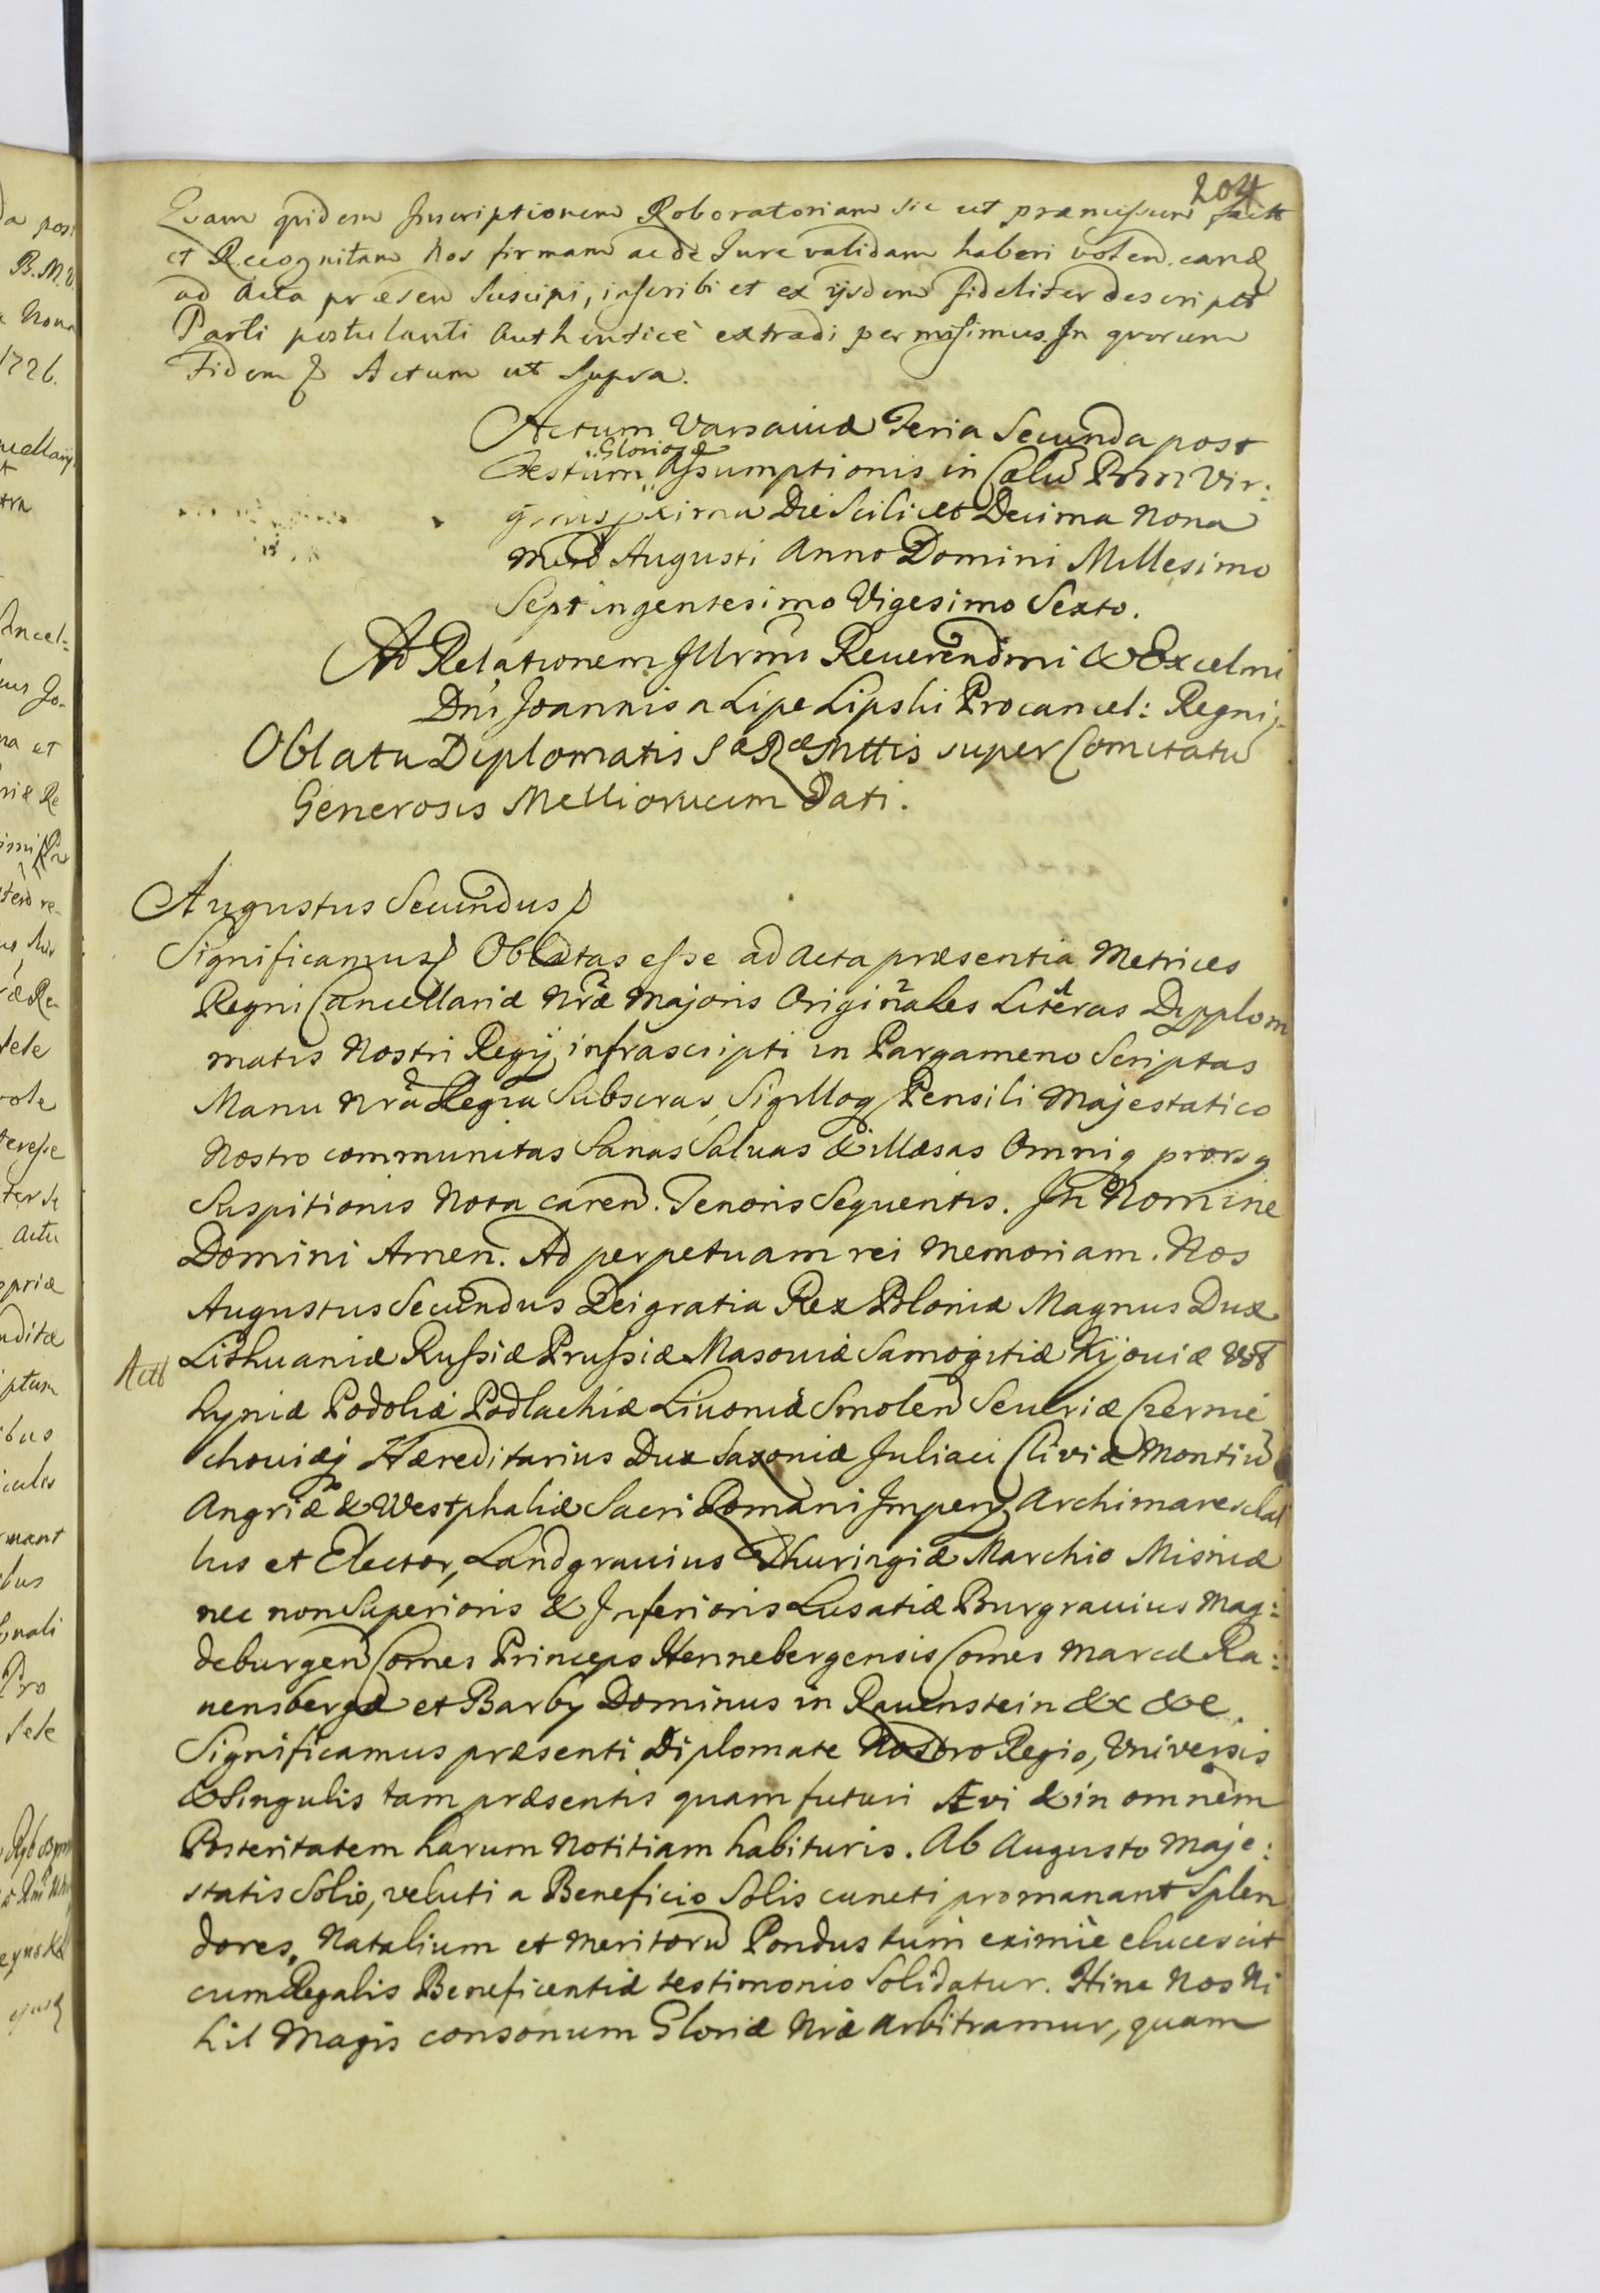 204
Quam quidem Inscriptionem Roboratoriam sic ut præmissum fact
et Recognitam Nos firmam ac de Jure validam haberi volen. eandq
ad Acta præsen Suscipi, inscribi et ex ijsdem fideliter descript
Parti postulanti Authenticè extradi permisimus. In quorum
Fidem Actum ut Supra.
Actum Varsaviæ Feria Secunda post
Gloriosæ
Festum Assumptionis in Cælũ Bmæ Vir:
ginis pxima Die Scilicet Decima Nona
Mens Augusti Anno Domini Millesimo
Septingentesimo Vigesimo Sexto.
Ad Relationem Illrmi Reverendmi & Excelmi
Dni Joannis a Lipe Lipski Procancel: Regni.
Oblata Diplomatis Sæ Ræ Mttis super Comitatu
Generosis Melliorucum Dati.
Augustus Secundus
Significamus Oblatas esse ad Acta præsentia Metrices
Regni Cancellariæ Nræ Majoris Originales Literas Dypplom
matis Nostri Regij infrascripti in Pargameno Scriptas
Manu Nrâ Regia Subscras, Sigilloq Pensili Majestatico
Nostro communitas Sanas Salvas & illæsas Omniq prorsq
Suspitionis Nota caren. Tenoris Sequentis. In Nomine
Domini Amen. Ad perpetuam rei memoriam. Nos
Augustus Secundus Dei gratia Rex Poloniæ Magnus Dux
Lithuaniæ Russiæ Prussiæ Masoviæ Samogitiæ Kijoviæ Vol
hyniæ Podoliæ Podlachiæ Livoniæ Smolen Severiæ Czernie
choviæq Hæreditarius Dux Saxoniæ Juliaci Cliviæ Montiũ
Angriæ & Westphaliæ Sacri Romani Imperij Archimareschal
lus et Elector, Landgravius Thuringiæ Marchio Misniæ
nec non Superioris & Inferioris Lusatiæ Burgravius Mag:
deburgen Comes Princeps Hennebergensis Comes Marcæ Ra:
vensbergæ et Barby Dominus in Ravenstein &c &c.
Significamus præsenti Diplomate Nostro Regio, Universis
& Singulis tam præsentis quam futuri Ævi & in omnem
Posteritatem harum Notitiam habituris. Ab Augusto Maje:
statis Solio, veluti a Beneficio Solis cuncti promanant Splen
dores, Natalium et Meritorũ Pondus tum eximiè elucescit
cum Regalis Beneficentiæ testimonio Solidatur. Hinc Nos Ni
hil Magis consonum Gloriæ Nræ Arbitramur, quam